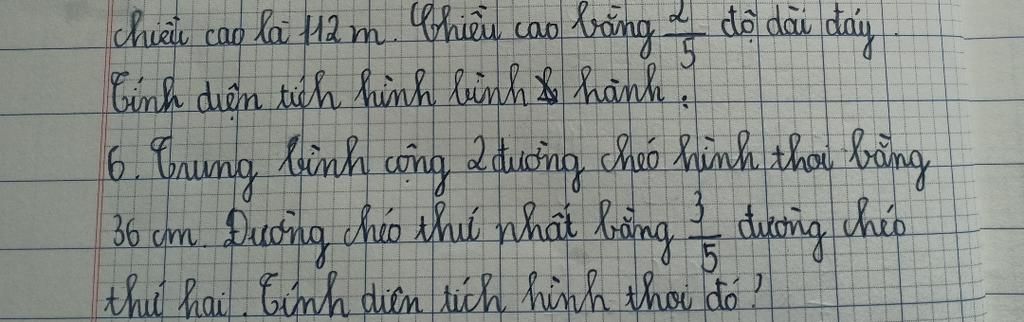 chiều cao là 112 m. Chiều cao bằng 2/5 độ dài đáy.
Tính diện tích hình bình hành.
6. Trung bình cộng 2 đường chéo hình thoi bằng
36 cm. Đường chéo thứ nhất bằng 3/5 đường chéo
thứ hai. Tính diện tích hình thoi đó?